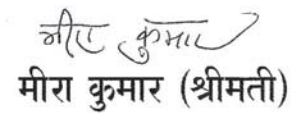 मीरा कुमार
मीरा कुमार (श्रीमती)